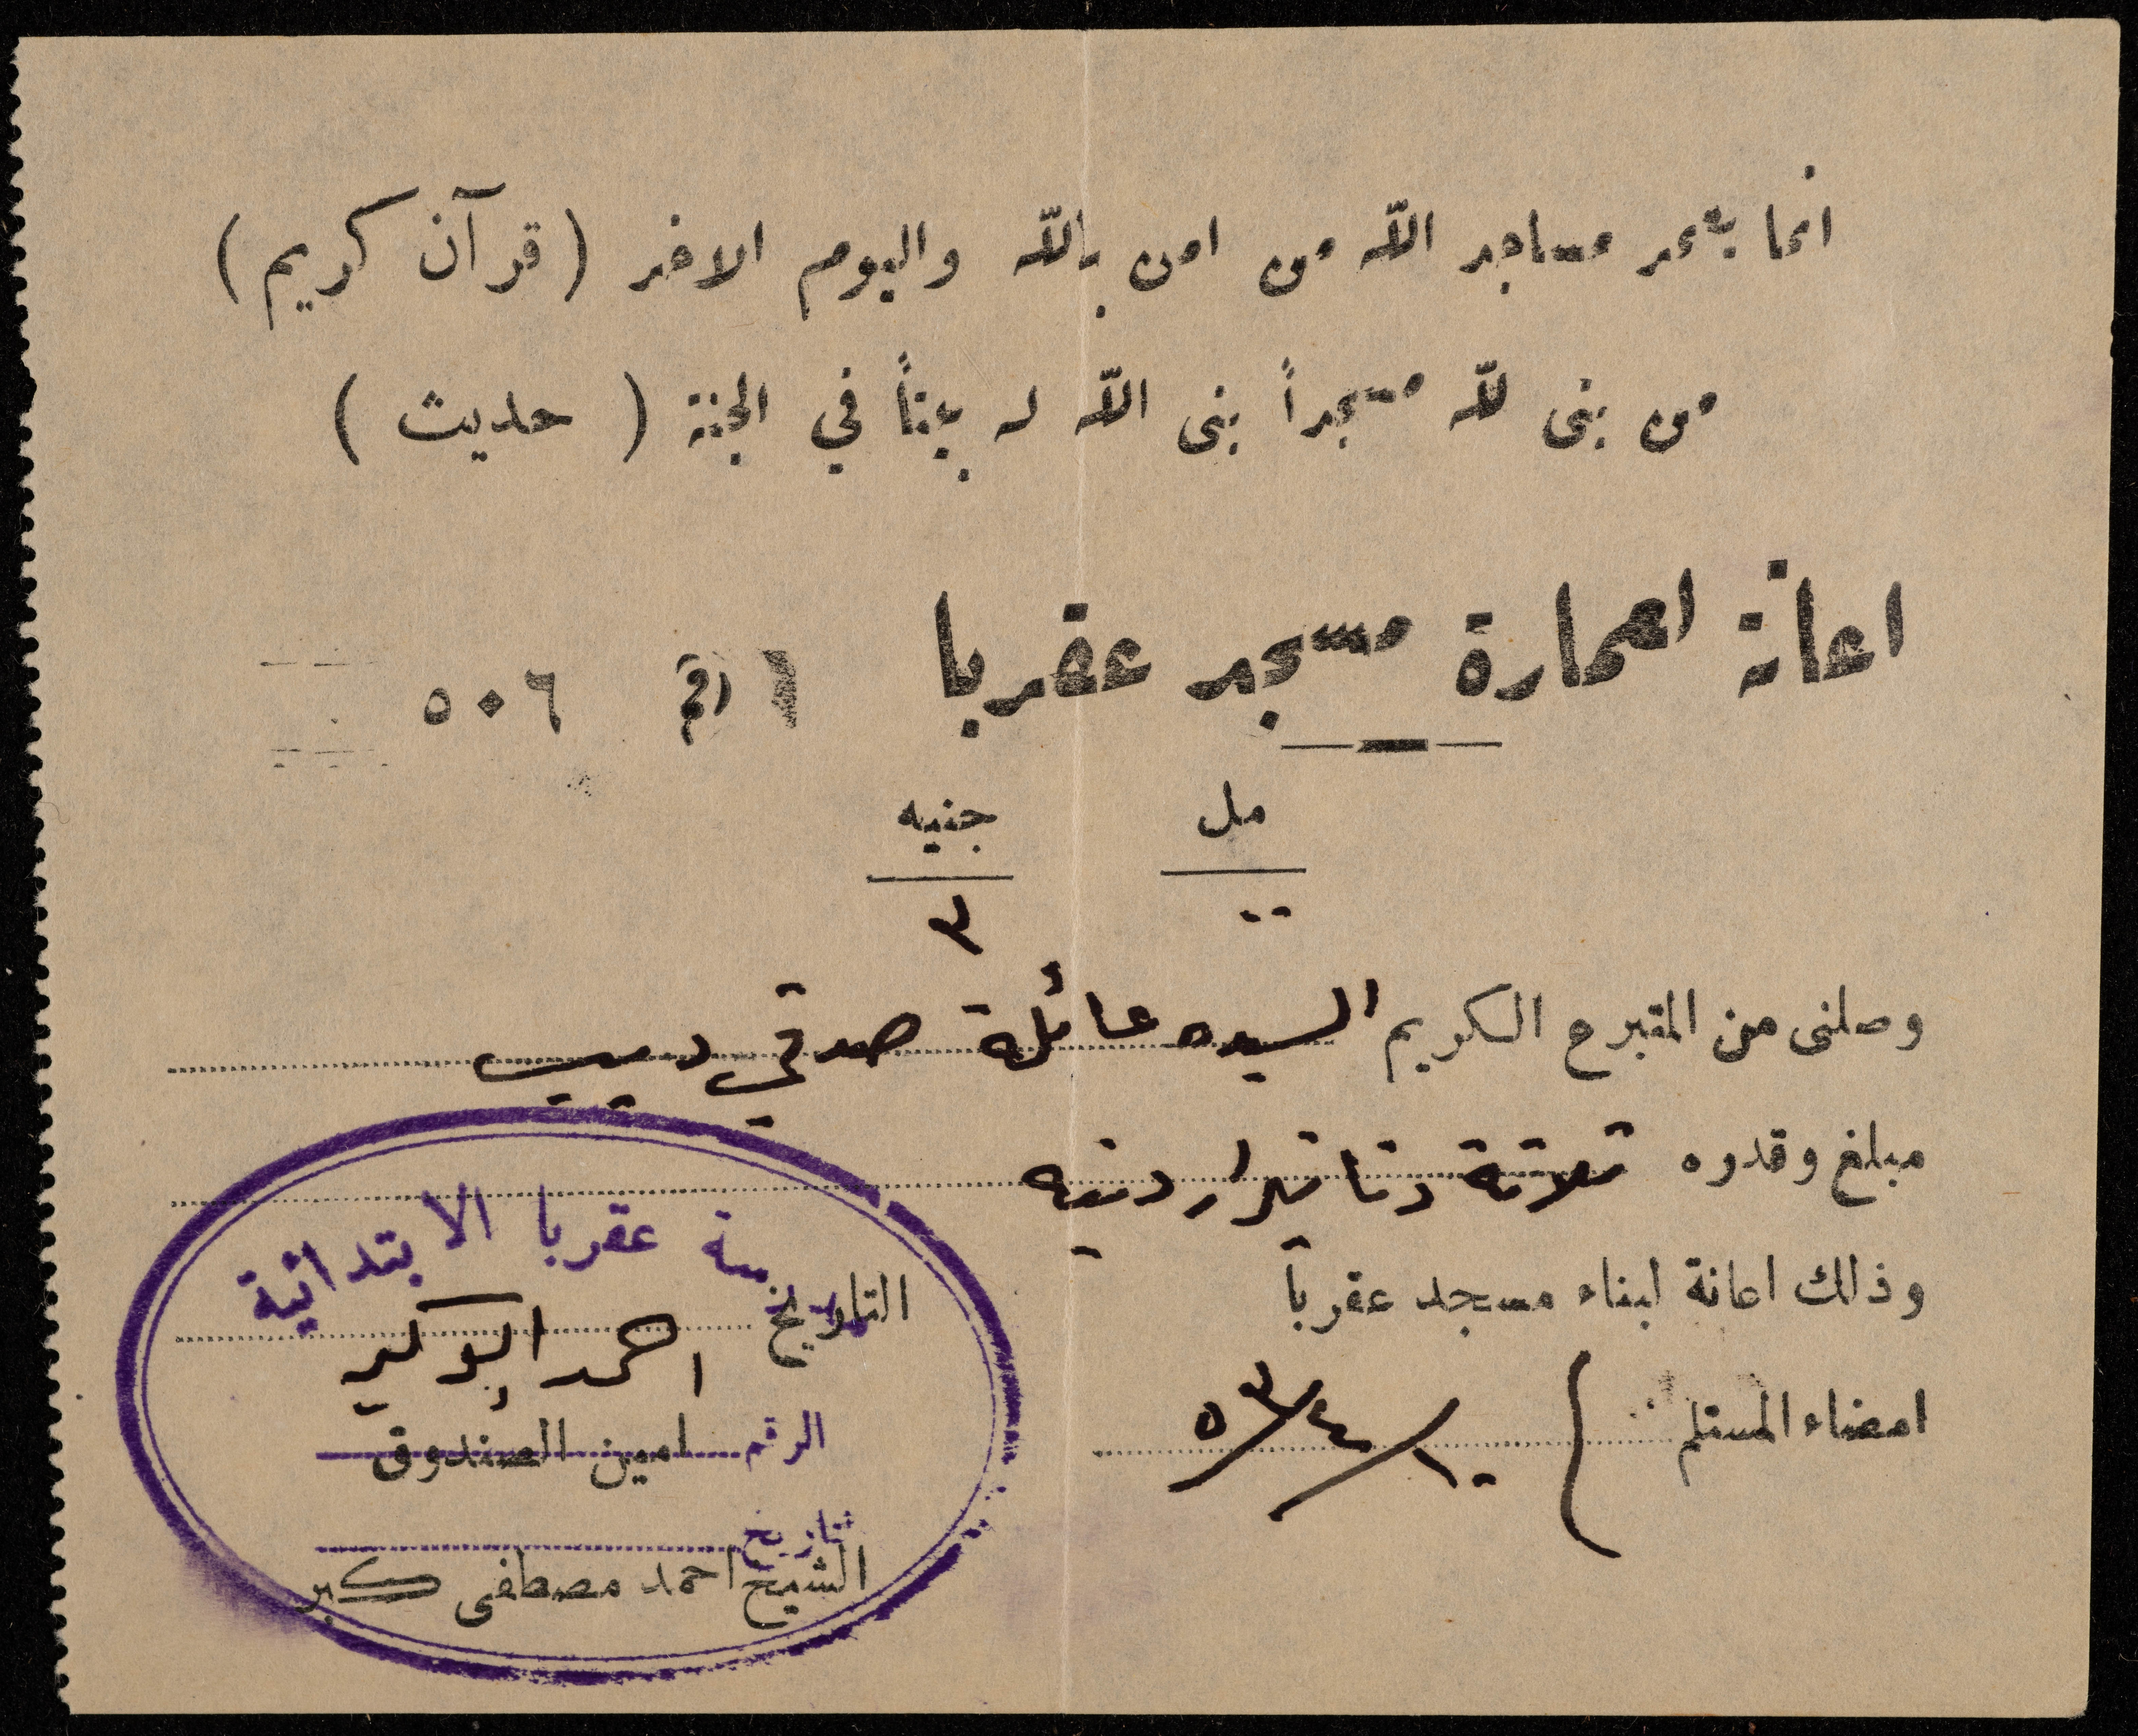 انما يعمر مساجد الله من امن بالله واليوم الاخر (قرآن كريم)
من بنى لله مسجداً بنى الله له بيتاً في الجنة ( حديث )
اعانة لعمارة مسجد عقربا رقم ٥٠٦
مل جنيه
٠٠ ٣
وصلنى من المتبرع الكريم السيده عائلة صدقي ديب
مبلغ وقدره ثلاثة دنانير اردنيه
وذلك اعانة لبناء مسجد عقربا
التاريخ
امضاء المستلم ١٠/٤/٥٣
سة عقربا الابتدائية
احمد
الرقم
امين الصندوق
تاريخ
الشيخ احمد مصطفى كبر